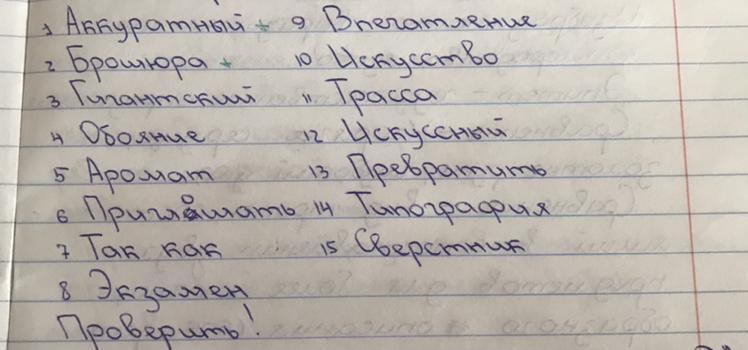 1 Аккуратный + 9 Впечатление
2 Брошюра + 10 Искусство
3 Гигантский 11 Трасса
4 Обояние 12 Искуссный
5 Аромат 13 Превратить
6 Приглошать 14 Типография
7 Так как 15 Сверстник
8 Экзамен
Проверить!